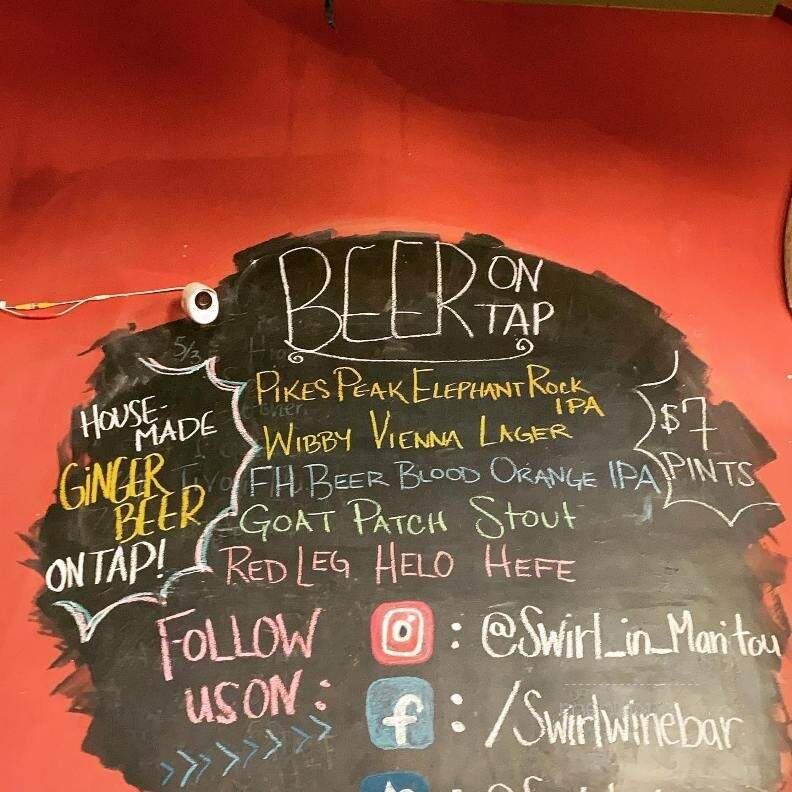 BEER ON TAP
PIKES PEAK ELEPHANT ROCK
IPA
WIBBY VIENNA LAGER
FH BEER BLOOD ORANGE IPA
GOAT PATCH STOUT
RED LEG HELO HEFE
HOUSE-
MADE
GINGER
BEER
ON TAP!
$7
PINTS
FOLLOW
US ON:
: @Swirl_in_Manitou
f : /Swirlwinebar